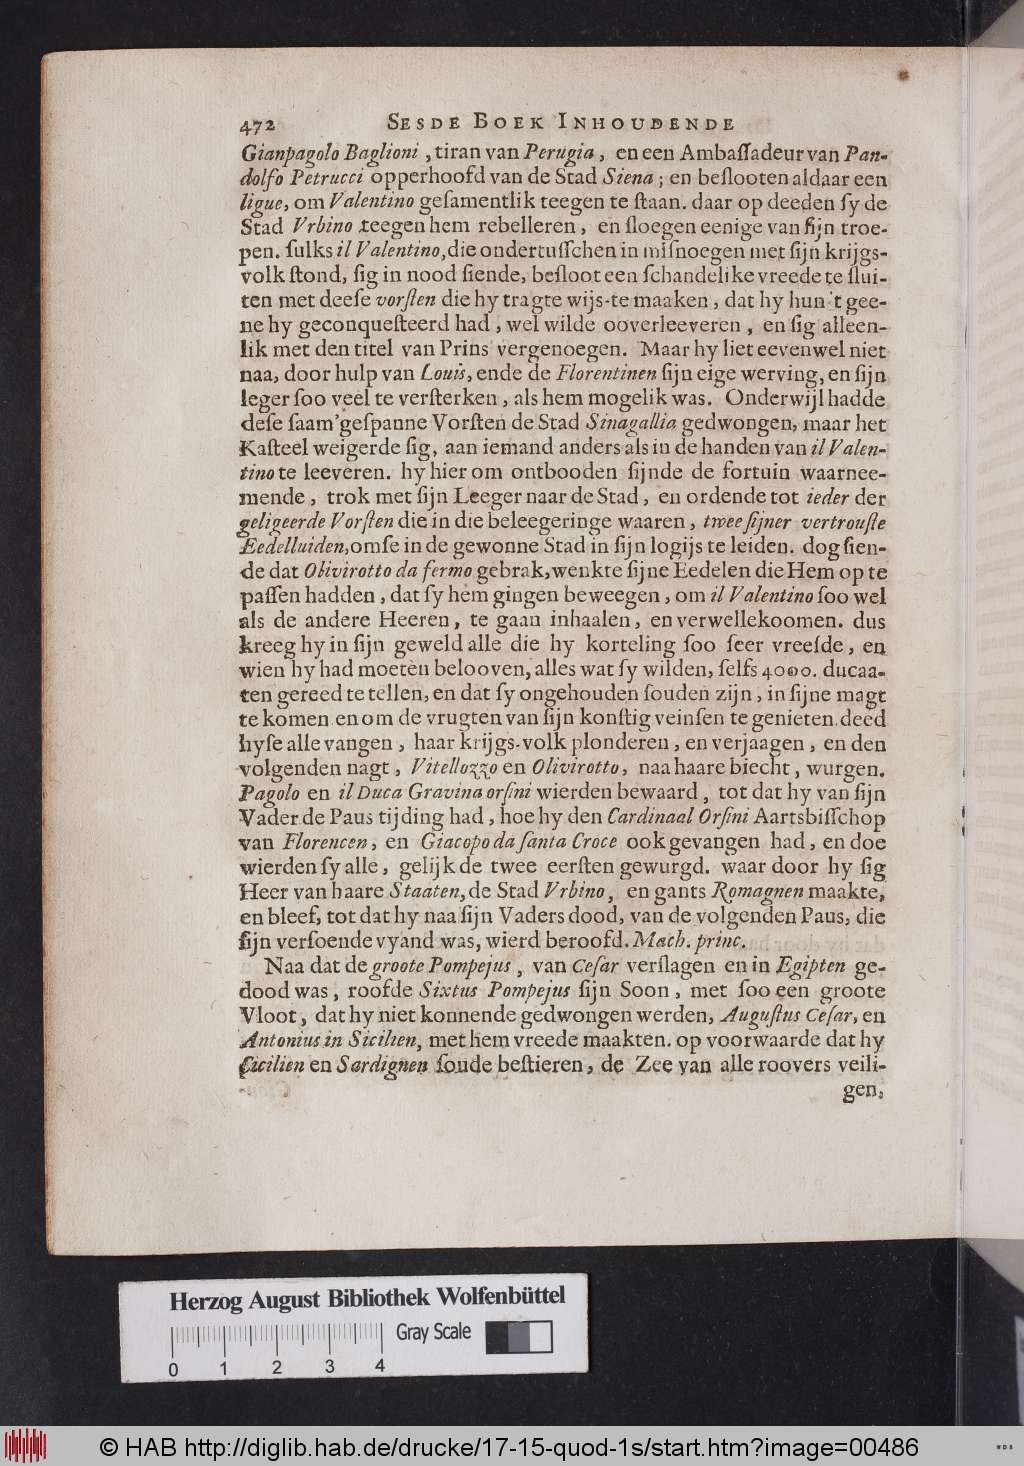 472 SESDE BOEK INHOUDENDE
Gianpagolo Baglioni, tiran van Perugia, en een Ambaſſadeur van Pan-
dolfo Petrucci opperhoofd van de Stad Siena; en beſlooten aldaar een
ligue, om Valentino geſamentlik teegen te ſtaan. daar op deeden ſy de
Stad Vrbino teegen hem rebelleren, en ſloegen eenige van ſijn troe-
pen. ſulks il Valentino, die ondertuſſchen in miſnoegen met ſijn krijgs-
volk ſtond, ſig in nood ſiende, beſloot een ſchandelike vreede te ſlui-
ten met deeſe vorſten die hy tragte wijs-te maaken, dat hy hun 't gee-
ne hy geconqueſteerd had, wel wilde ooverleeveren, en ſig alleen-
lik met den titel van Prins vergenoegen. Maar hy liet eevenwel niet
naa, door hulp van Louis, ende de Florentinen ſijn eige werving, en ſijn
leger ſoo veel te verſterken, als hem mogelik was. Onderwijl hadde
deſe ſaam'geſpanne Vorſten de Stad Sinagallia gedwongen, maar het
Kaſteel weigerde ſig, aan iemand anders als in de handen van il Valen-
tino te leeveren. hy hier om ontbooden ſijnde de fortuin waarnee-
mende, trok met ſijn Leeger naar de Stad, en ordende tot ieder der
geligeerde Vorſten die in die beleegeringe waaren, twee ſijner vertrouſte
Eedelluiden, omſe in de gewonne Stad in ſijn logijs te leiden. dog ſien-
de dat Olivirotto da fermo gebrak, wenkte ſijne Eedelen die Hem op te
paſſen hadden, dat ſy hem gingen beweegen, om il Valentino ſoo wel
als de andere Heeren, te gaan inhaalen, en verwellekoomen. dus
kreeg hy in ſijn geweld alle die hy korteling ſoo ſeer vreeſde, en
wien hy had moeten belooven, alles wat ſy wilden, ſelfs 4000. ducaa-
ten gereed te tellen, en dat ſy ongehouden ſouden zijn, in ſijne magt
te komen en om de vrugten van ſijn konſtig veinſen te genieten. deed
hyſe alle vangen, haar krijgs-volk plonderen, en verjaagen, en den
volgenden nagt, Vitellozzo en Olivirotto, naa haare biecht, wurgen.
Pagolo en il Duca Gravina orſini wierden bewaard, tot dat hy van ſijn
Vader de Paus tijding had, hoe hy den Cardinaal Orſini Aartsbiſſchop
van Florencen, en Giacopo da ſanta Croce ook gevangen had, en doe
wierden ſy alle, gelijk de twee eerſten gewurgd. waar door hy ſig
Heer van haare Staaten, de Stad Vrbino, en gants Romagnen maakte,
en bleef, tot dat hy naa ſijn Vaders dood, van de volgenden Paus, die
ſijn verſoende vyand was, wierd beroofd. Mach. princ.
Naa dat de groote Pompejus, van Ceſar verſlagen en in Egipten ge-
dood was, roofde Sixtus Pompejus ſijn Soon, met ſoo een groote
Vloot, dat hy niet konnende gedwongen werden, Auguſtus Ceſar, en
Antonius in Sicilien, met hem vreede maakten. op voorwaarde dat hy
Cicilien en Sardignen ſoude beſtieren, de Zee van alle roovers veili-
gen,
Herzog August Bibliothek Wolfenbüttel
Gray Scale
0 1 2 3 4
© HAB http://diglib.hab.de/drucke/17-15-quod-1s/start.htm?image=00486